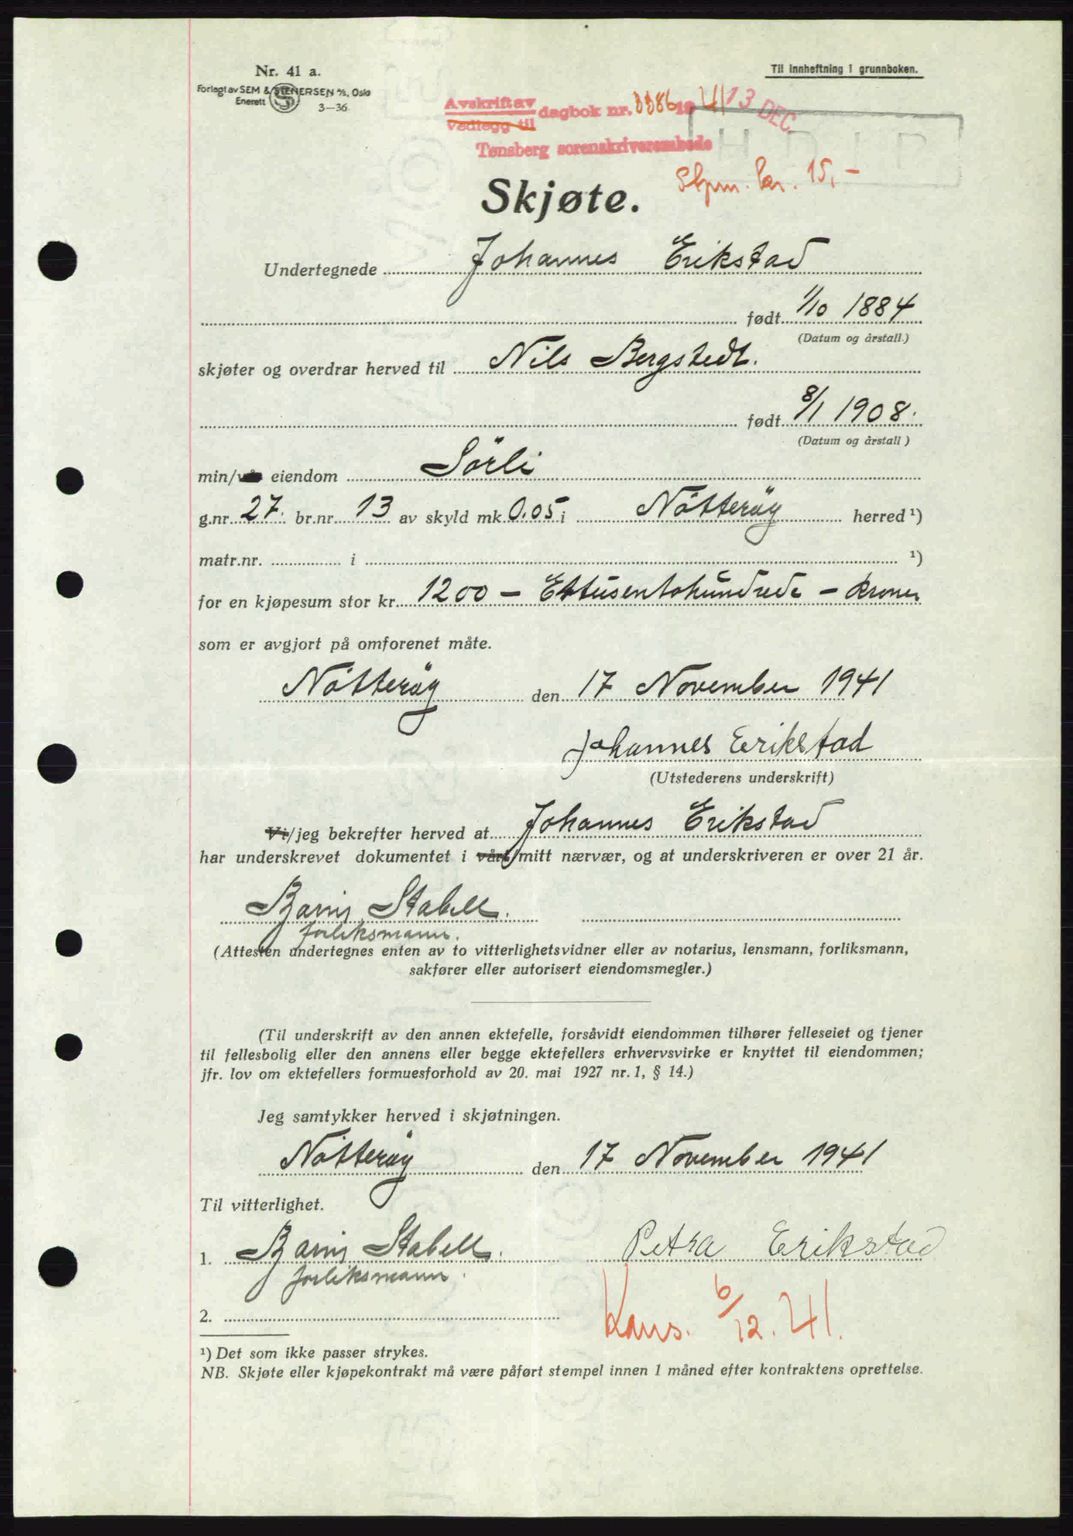 Nr. 41 a.
Forlagt av SEM & STENERSEN A/S, Oslo
Enerett 3-36
Til innheftning i grunnboken.
Avskrift av
Vedlegg til
dagbok nr. 3386 19 41 13 DEC.
Tønsberg sorenskriverembede
Stpm. kr. 15,-
Skjøte.
Undertegnede Johannes Erikstad
født 1/10 1884
(Datum og årstall.)
skjøter og overdrar herved til Nils Bergstedt.
født 8/1 1908.
(Datum og årstall)
min/vår eiendom Sörli
g.nr. 27. br.nr. 13 av skyld mk. 0.05 i Nötteröy herred ¹)
matr.nr. i ¹)
for en kjøpesum stor kr. 1200 – Ettusentohundrede – kroner
som er avgjort på omforenet måte.
Nötteröy den 17 November 1941
Johannes Erikstad
(Utstederens underskrift)
Vi/jeg bekrefter herved at Johannes Erikstad
har underskrevet dokumentet i vårt/mitt nærvær, og at underskriveren er over 21 år.
Stabell.
forliksmann.
(Attesten undertegnes enten av to vitterlighetsvidner eller av notarius, lensmann, forliksmann,
sakfører eller autorisert eiendomsmegler.)
(Til underskrift av den annen ektefelle, forsåvidt eiendommen tilhører felleseiet og tjener
til fellesbolig eller den annens eller begge ektefellers erhvervsvirke er knyttet til eiendommen;
jfr. lov om ektefellers formuesforhold av 20. mai 1927 nr. 1, § 14.)
Jeg samtykker herved i skjøtningen.
Nötteröy den 17 November 1941
Til vitterlighet.
1. Stabell. Petra Erikstad
forliksmann.
2.
Kons. 6/12. 41.
¹) Det som ikke passer strykes.
NB. Skjøte eller kjøpekontrakt må være påført stempel innen 1 måned efter kontraktens oprettelse.